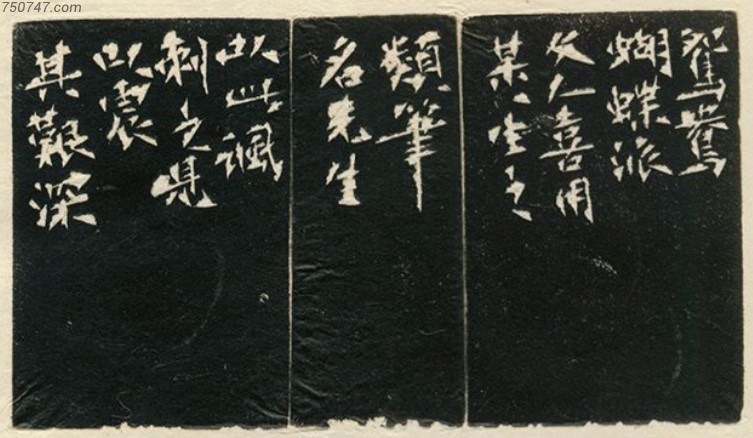 750747.com
鴛鴦
蝴蝶派
文人喜用
某某生之
類筆
名先生
以此諷
刺之是
以震
其艱深